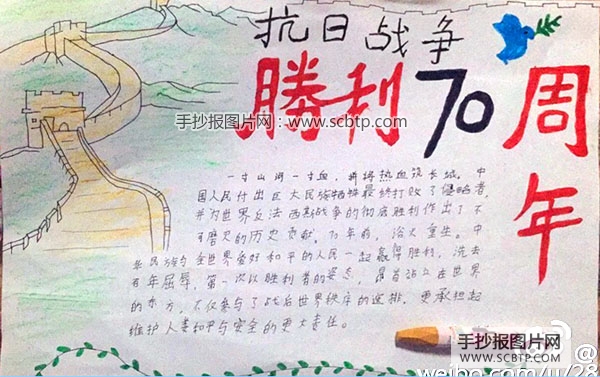 抗日战争
勝利70周年
手抄报图片网：www.scbtp.com
一寸山河一寸血，并将热血筑长城。中
国人民付出巨大民族牺牲最终打败了侵略者，
并为世界反法西斯战争的彻底胜利作出了不
可磨灭的历史贡献。70年前，浴火重生。中
华民族与全世界爱好和平的人民一起赢得胜利，洗去
百年屈辱，第一次以胜利者的姿态，昂首站立在世界
的东方，不仅参与了战后世界秩序的安排，更承担起
维护人类和平与安全的更大责任。
手抄报图片网
WWW.SCBTP.COM
@
weibo.com/u/28